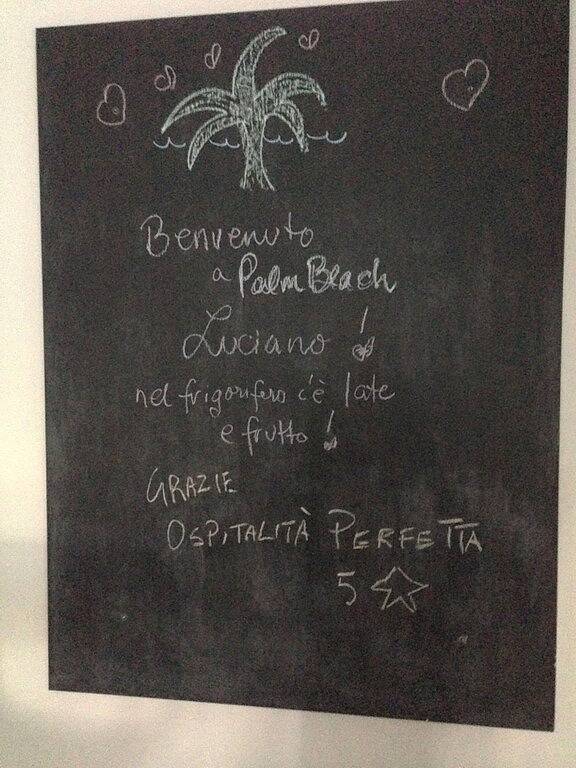 Benvenuto
a Palm Beach
Luciano !
nel frigorifero c'è late
e frutto !
GRAZIE
OSPITALITÀ PERFETTA
5